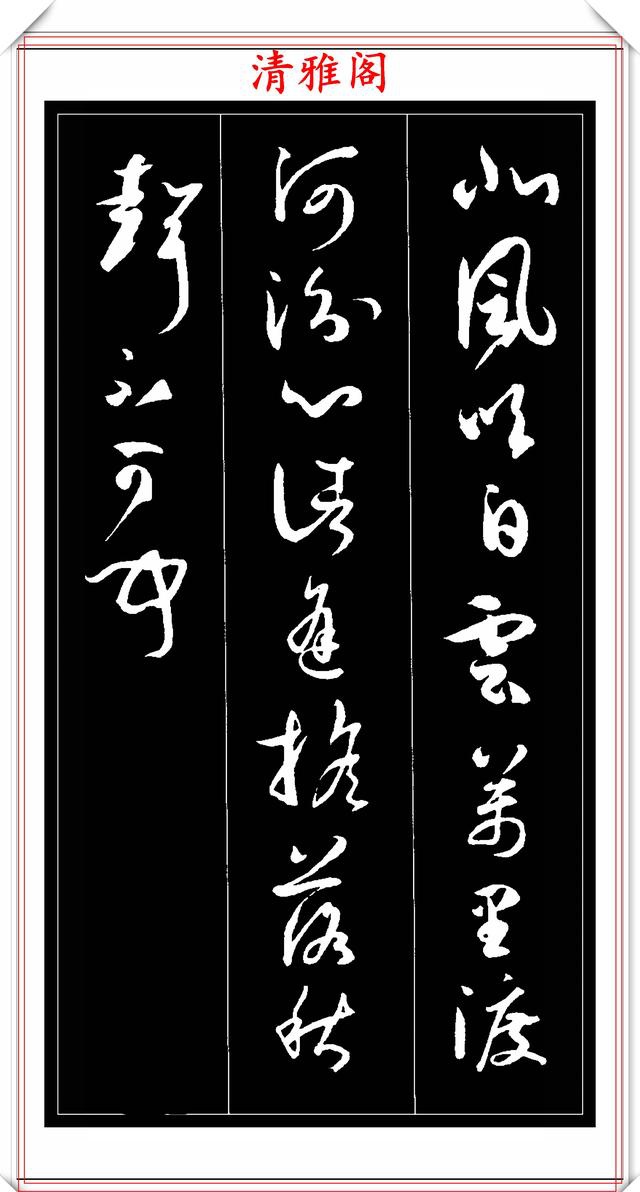 清雅阁
北風吹白雲萬里渡
河汾心緒逢搖落秋
聲不可聞